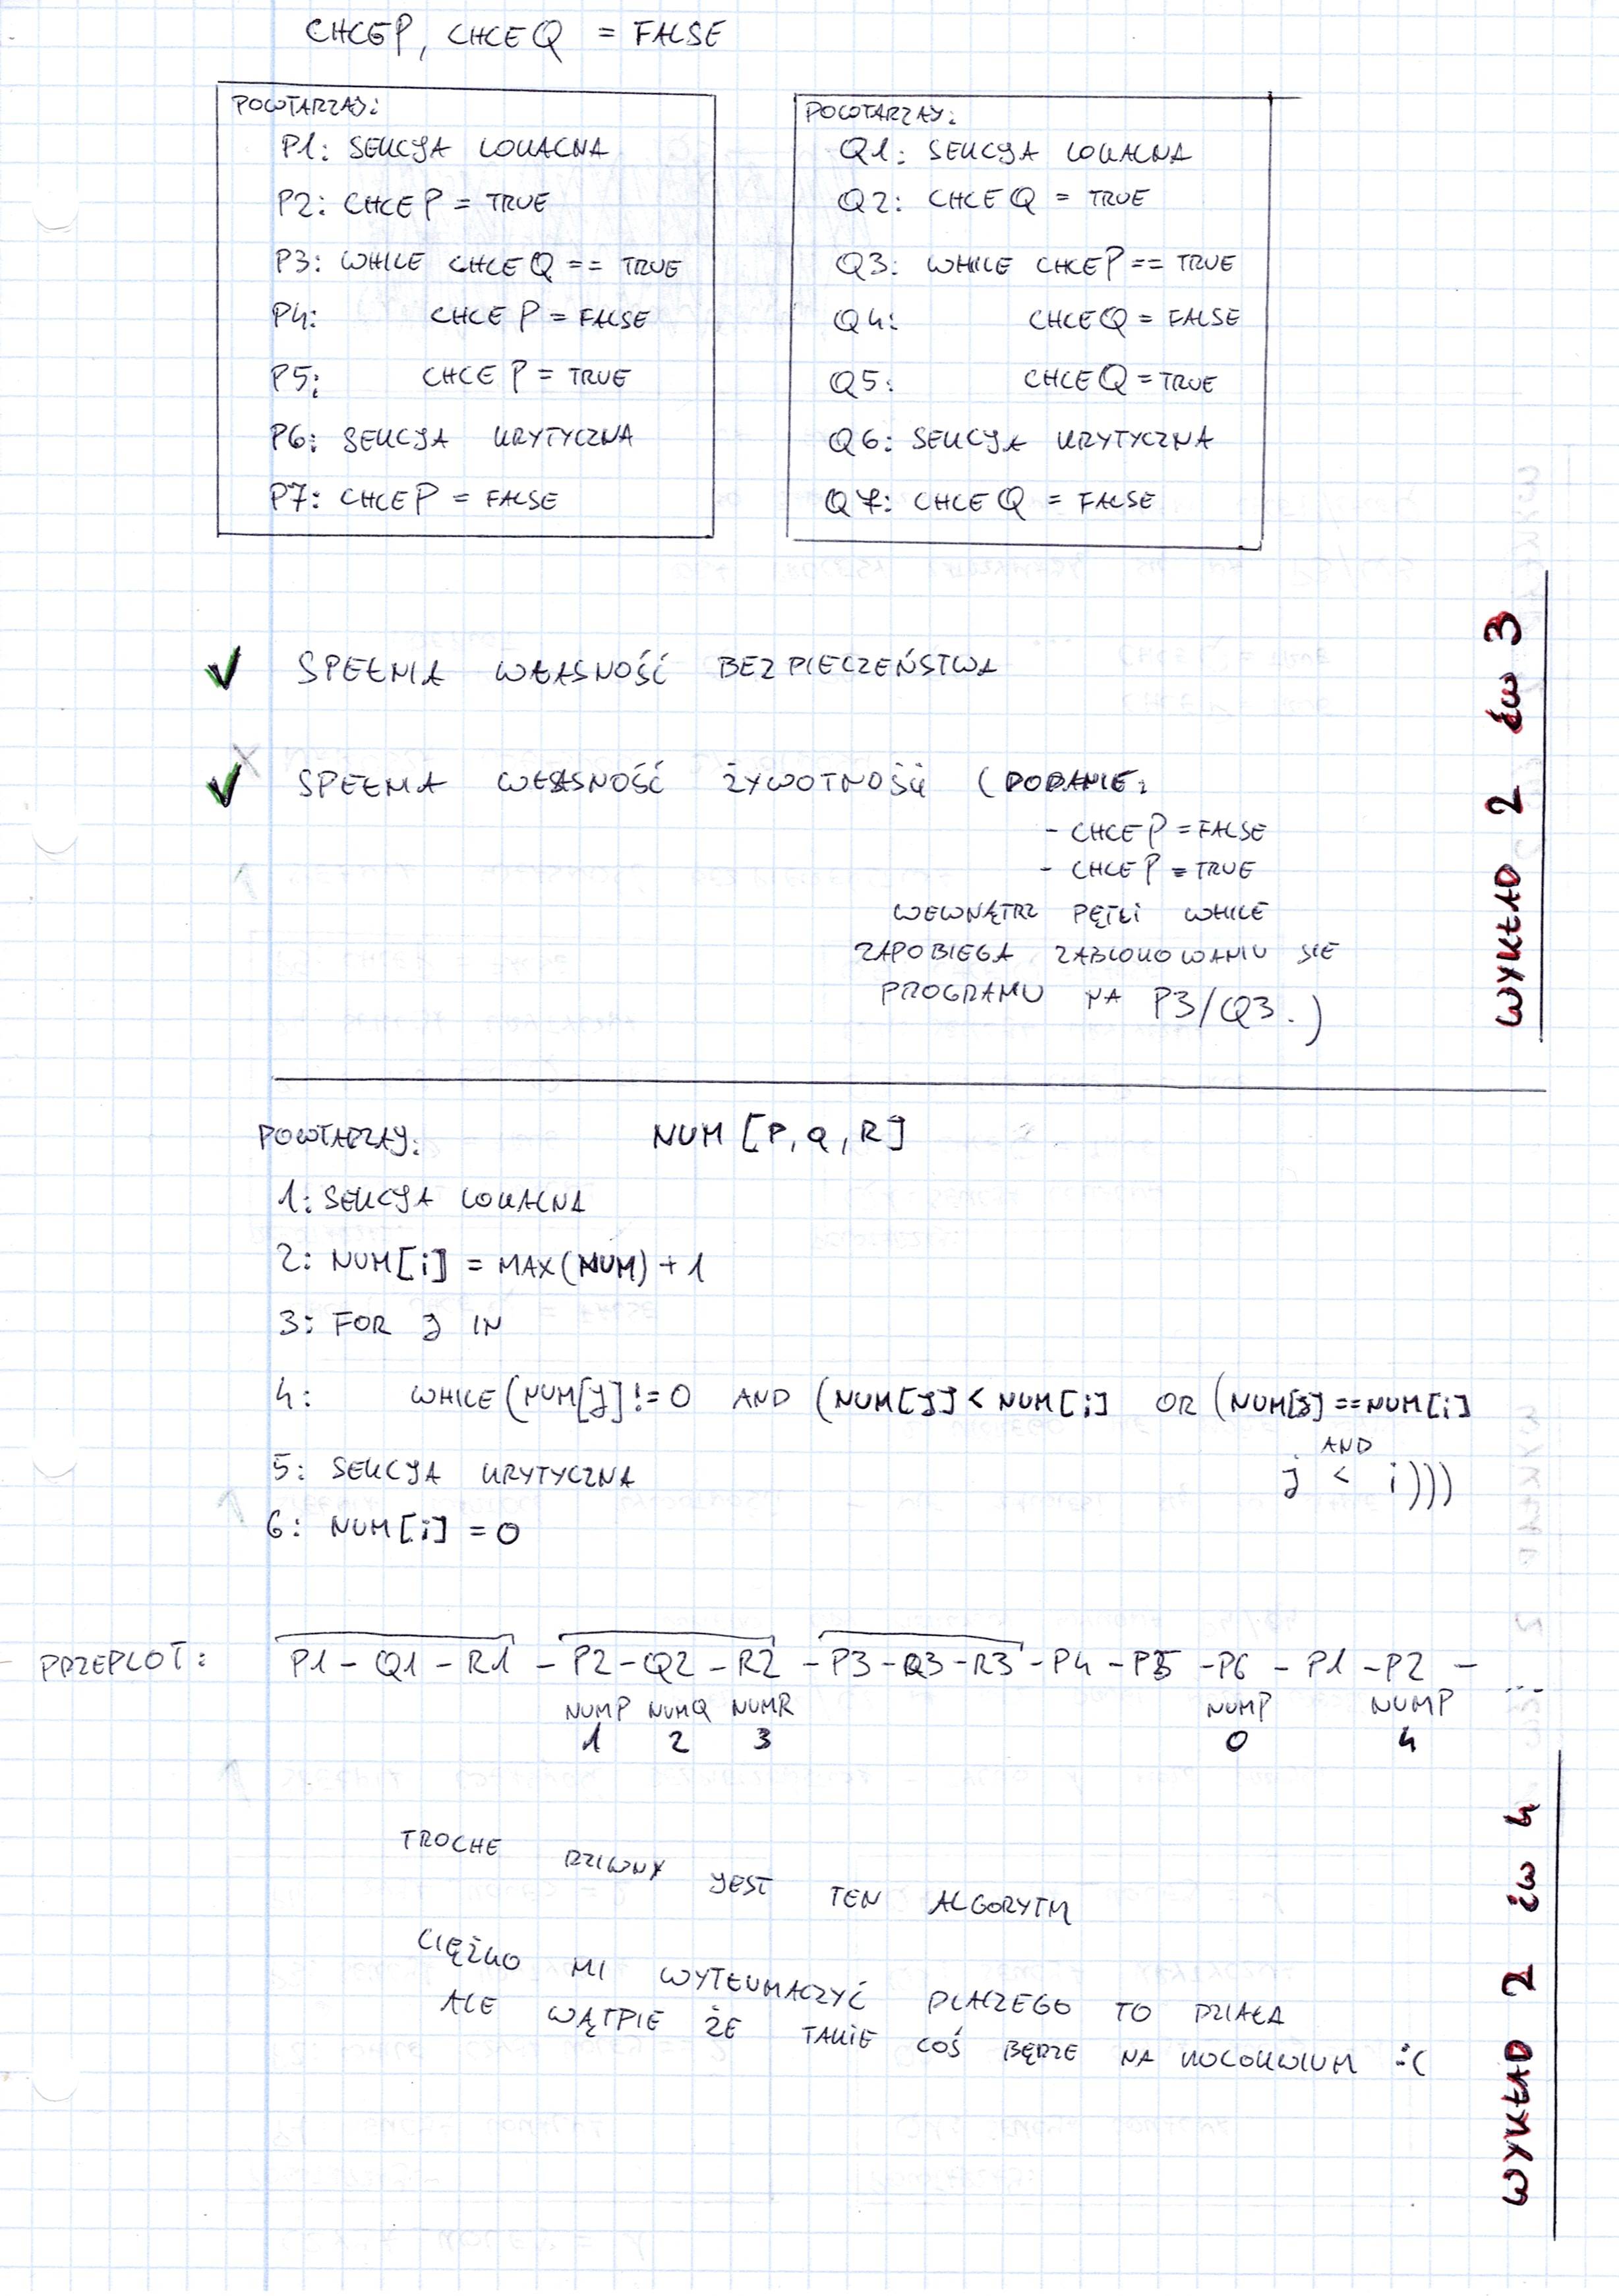 CHCEP, CHCEQ = FALSE
POWTARZAJ:
P1: SEKCJA LOKALNA
P2: CHCEP = TRUE
P3: WHILE CHCEQ == TRUE
P4: CHCEP = FALSE
P5: CHCEP = TRUE
P6: SEKCJA KRYTYCZNA
P7: CHCEP = FALSE
POWTARZAJ:
Q1: SEKCJA LOKALNA
Q2: CHCEQ = TRUE
Q3: WHILE CHCEP == TRUE
Q4: CHCEQ = FALSE
Q5: CHCEQ = TRUE
Q6: SEKCJA KRYTYCZNA
Q7: CHCEQ = FALSE
✓ SPEŁNIA WŁASNOŚĆ BEZPIECZEŃSTWA
✓ SPEŁNIA WŁASNOŚĆ ŻYWOTNOŚCI (DODANIE:
- CHCEP = FALSE
- CHCEP = TRUE
WEWNĄTRZ PĘTLI WHILE
ZAPOBIEGA ZABLOKOWANIU SIE
PROGRAMU NA P3/Q3.)
WYKŁAD 2 ćw 3
POWTARZAJ: NUM [P, Q, R]
1: SEKCJA LOKALNA
2: NUM[i] = MAX(NUM) + 1
3: FOR J IN
4: WHILE (NUM[J] != 0 AND (NUM[J] < NUM[i] OR (NUM[J] == NUM[i]
AND
j < i)))
5: SEKCJA KRYTYCZNA
6: NUM[i] = 0
PRZEPLOT: P1 - Q1 - R1 - P2 - Q2 - R2 - P3 - Q3 - R3 - P4 - P5 - P6 - P1 - P2 - ...
NUMP NUMQ NUMR NUMP NUMP
1 2 3 0 4
TROCHE DZIWNY JEST TEN ALGORYTM
CIĘŻKO MI WYTŁUMACZYĆ DLACZEGO TO DZIAŁA
ALE WĄTPIE ŻE TAKIE COŚ BĘDZE NA KOLOKWIUM :(
WYKŁAD 2 ćw 4